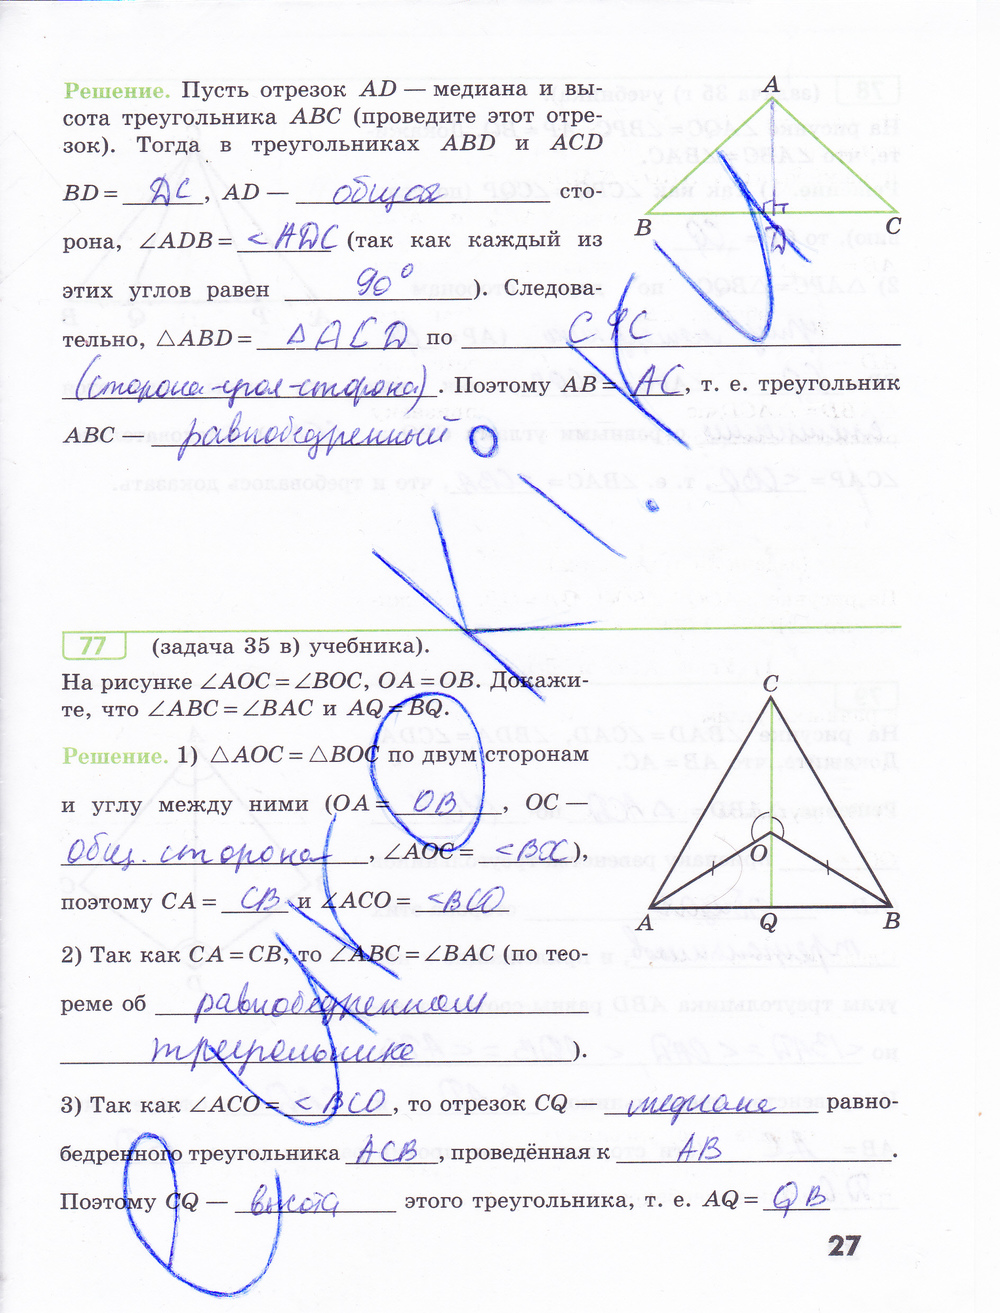 Решение. Пусть отрезок AD — медиана и вы-
сота треугольника ABC (проведите этот отре-
зок). Тогда в треугольниках ABD и ACD
BD = DC, AD — общая сто-
рона, ∠ADB = <ADC (так как каждый из
этих углов равен 90°). Следова-
тельно, △ABD = △ACD по СУС
(сторона-угол-сторона). Поэтому AB = AC, т. е. треугольник
ABC — равнобедренный
A
B
D
C
77 (задача 35 в) учебника).
На рисунке ∠AOC = ∠BOC, OA = OB. Докажи-
те, что ∠ABC = ∠BAC и AQ = BQ.
Решение. 1) △AOC = △BOC по двум сторонам
и углу между ними (OA = OB, OC —
общ. сторона, ∠AOC = <BOC),
поэтому CA = CB и ∠ACO = <BCO
2) Так как CA = CB, то ∠ABC = ∠BAC (по тео-
реме об равнобедренном
треугольнике).
3) Так как ∠ACO = <BCO, то отрезок CQ — медиана равно-
бедренного треугольника ACB, проведённая к AB.
Поэтому CQ — высота этого треугольника, т. е. AQ = QB
C
O
A
Q
B
27